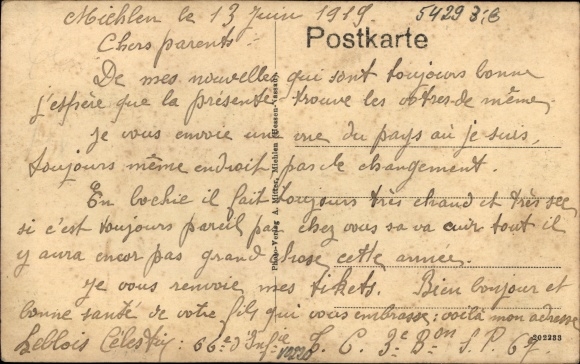 Miehlen le 13 Juin 1919
5429 3:6
Postkarte
Chers parents
De mes nouvelles qui sont toujours bonne
j'espère que la présente trouve les votres de même
Je vous envoie une vue du pays où je suis,
toujours même endroit pas de changement.
En bochie il fait toujours très chaud et très sec
si c'est toujours pareil par chez vous sa va cuir tout il
y aura encor pas grand chose cette année.
Je vous renvoie mes tikets. Bien bonjour et
bonne santé de votre fils qui vous embrasse: voilà mon adresse
Leblois Célestin: 66e d'Infie C. 3e Bon S.P. 67
Photo-Verlag A. Miehlen (Hessen-Nassau)
202283